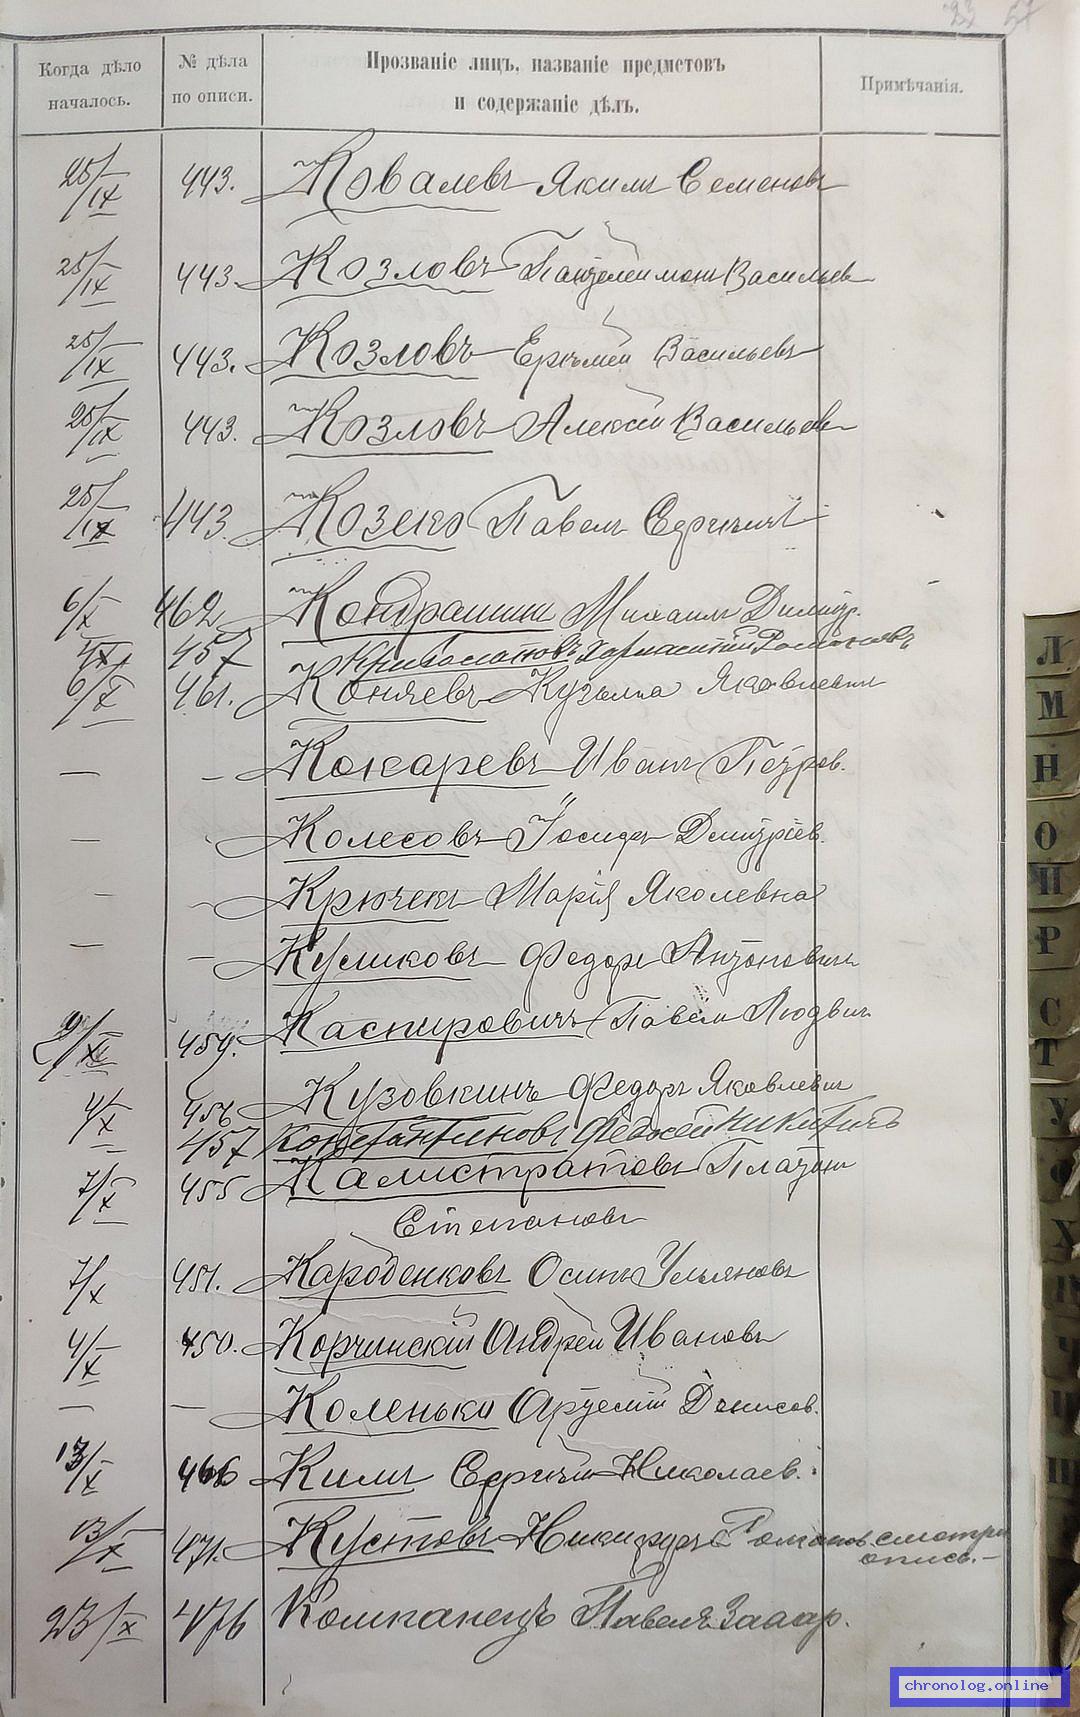 Когда дѣло началось.
№ дѣла по описи.
Прозваніе лицъ, названіе предметовъ и содержаніе дѣлъ.
Примѣчанія.
25/IX 443. Ковалевъ Якимъ Семеновъ
25/IX 443. Козловъ Пантелеимонъ Васильев
25/IX 443. Козловъ Еремѣй Васильевъ
25/IX 443. Козловъ Алексѣй Васильев
25/IX 443. Козеко Павелъ
6/X 462 Кондрашин Михаилъ Димитр.
457 Романовъ
6/X 461. Коняевъ Кузьма Яковлевич
— - Кокаревъ Иванъ Петров.
— - Колесовъ Іосифъ Дмитріев.
— - Крючекъ Марія Яколевна
— - Куликовъ Федоръ Антоновичъ
2/XII 459. Каспировичъ Павелъ Людвич
4/X 456 Кузовкинъ Федоръ Яковлевич
457 Константиновъ Федосей Никитичъ
7/X 455 Калистратовъ Платон
Степановъ
7/X 451. Кароденковъ Осипъ Ульяновъ
4/X 450. Корчинскій Андрей Ивановъ
— - Коленько Артемій Денисов.
13/X 466 Кимъ Николаев.
13/X 471. Кустовъ Никифоръ Романов. смотри
опись.—
23/X 476 Компанецъ Павелъ Захар.
Л
М
Н
О
П
Р
С
Т
У
Ф
Х
Ц
Ч
Ш
chronolog.online